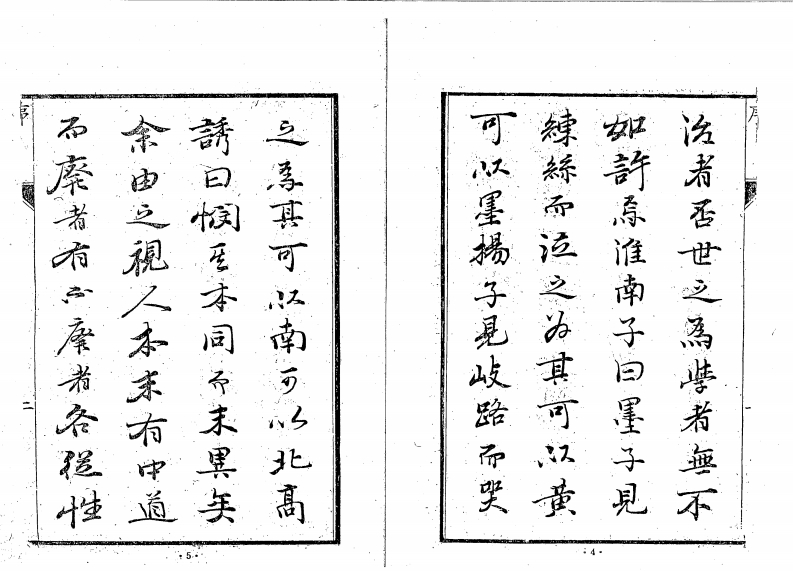 治者否世之為學者無不
如許焉淮南子曰墨子見
練絲而泣之為其可以黃
可以墨揚子見歧路而哭
·4·
之為其可以南可以北高
誘曰憫其本同而末異矣
余由之視人本末有中道
而廢者有不廢者各從性
·5·
序
二